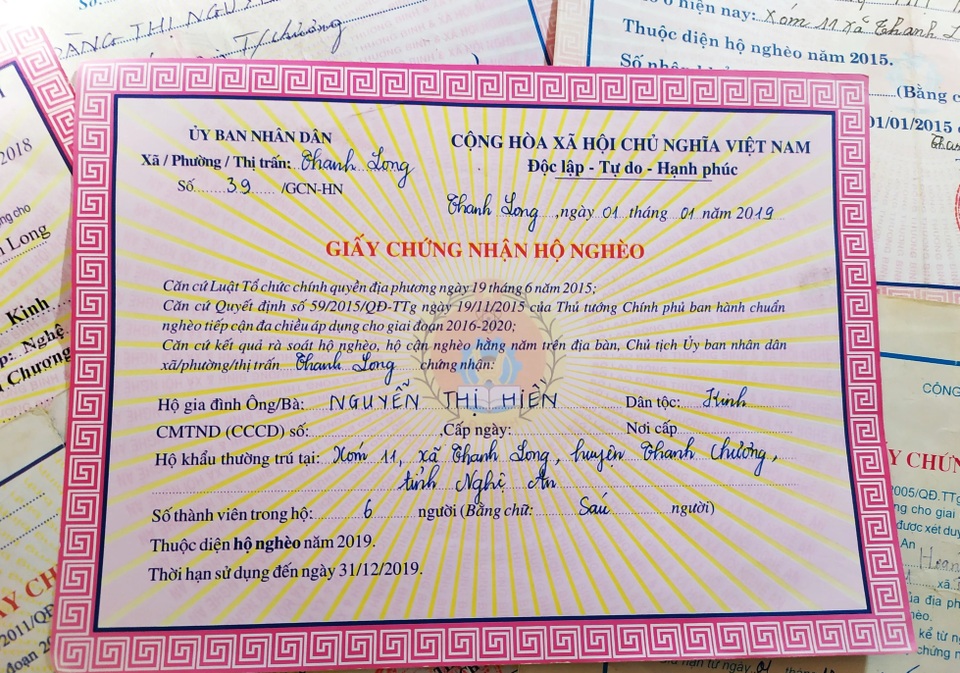 Số:
ẰNG THỊ NGU
T/chương
ở hiện nay: Xóm 11 xã Thanh L
Thuộc diện hộ nghèo năm 2015.
Số nhân khẩu
(Bằng c
01/01/2015 đ
2018
ng cho
Long
Kinh
p: Nghệ
Chương
ỦY BAN NHÂN DÂN
Xã / Phường / Thị trấn: Thanh Long
Số 39 /GCN-HN
CỘNG HÒA XÃ HỘI CHỦ NGHĨA VIỆT NAM
Độc lập - Tự do - Hạnh phúc
Thanh Long, ngày 01 tháng 01 năm 2019
GIẤY CHỨNG NHẬN HỘ NGHÈO
Căn cứ Luật Tổ chức chính quyền địa phương ngày 19 tháng 6 năm 2015;
Căn cứ Quyết định số 59/2015/QĐ-TTg ngày 19/11/2015 của Thủ tướng Chính phủ ban hành chuẩn
nghèo tiếp cận đa chiều áp dụng cho giai đoạn 2016-2020;
Căn cứ kết quả rà soát hộ nghèo, hộ cận nghèo hằng năm trên địa bàn, Chủ tịch Ủy ban nhân dân
xã/phường/thị trấn Thanh Long chứng nhận:
Hộ gia đình Ông/Bà: NGUYỄN THỊ HIỀN Dân tộc: Kinh
CMTND (CCCD) số: ,Cấp ngày: Nơi cấp
Hộ khẩu thường trú tại: Xóm 11, xã Thanh Long, huyện Thanh Chương,
tỉnh Nghệ An
Số thành viên trong hộ: 6 người (Bằng chữ: Sáu người)
Thuộc diện hộ nghèo năm 2019.
Thời hạn sử dụng đến ngày 31/12/2019.
CÔNG
Y CHỨN
2005/QĐ.TTg
ng cho giai
được xét duy
An
Hoàn
xã
ủa địa ph
hèo.
kể từ ng
chứng n
hạn từ ngày 01
ẤY CH
2011/QĐ
đoạn 2